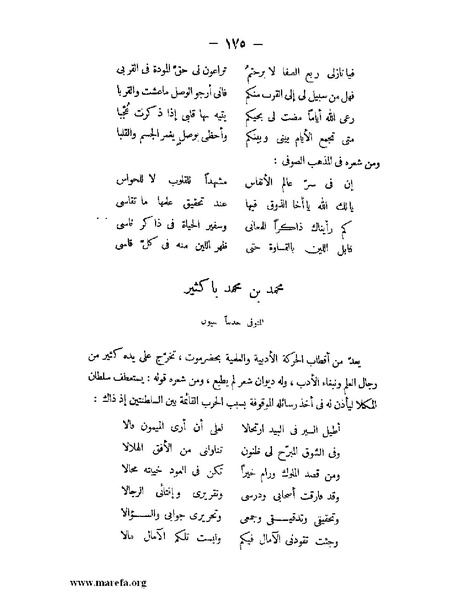 — ١٧٥ —
فيا نازلى ربع الصفا لا برحتمُ تراعون فى حقّ المودة فى القربى
فهل من سبيل لى إلى القرب منكم فانى أرجو الوصل ما عشت والقربا
رعى الله أياماً مضت لى بحيكم يتيه بها قلبى إذا ذكرت عُجبا
متى تجمع الأيام بينى وبينكم وأحظى بوصل يغمر الجسم والقلبا
ومن شعره فى المذهب الصوفى :
إن فى سرّ عالم الأنفاس مشهداً للقلوب لا للحواس
يالك الله يا أخا الذوق فيها عند تحقيق علمها ما تقاسى
كم رأيناك ذاكراً للمعانى وسفير الحياة فى ذاكر ناسى
قابل اللين بالقساوة حتى ظهر اللين منه فى كلّ قاسى
محمد بن محمد با كثير
المتوفى بسيون
يعدّ من أقطاب الحركة الأدبية والعلمية بحضرموت ، تخرّج على يده كثير من
رجال العلم ونبغاء الأدب ، وله ديوان شعر لم يطبع ، ومن شعره قوله : يستعطف سلطان
المكلا ليأذن له فى أخذ رسائله الموقوفة بسبب الحرب القائمة بين السلطنتين إذ ذاك :
أطيل السير فى البيد ارتحالا لعلى أن أرى الميمون فالا
وفى الشوق المبرّح لى ظنون تناولنى من الأفق الهلالا
ومن قصد الملوك ورام خيراً تكن فى العود خيبته محالا
وقد فارقت أصحابى ودرسى وتقريرى وإفتائى الرجالا
وتحقيقى وتدقيقى وجمعى وتحريرى جوابى والسؤالا
وجئت تقودنى الآمال فيكم وليست تلكم الآمال مالا
www.marefa.org